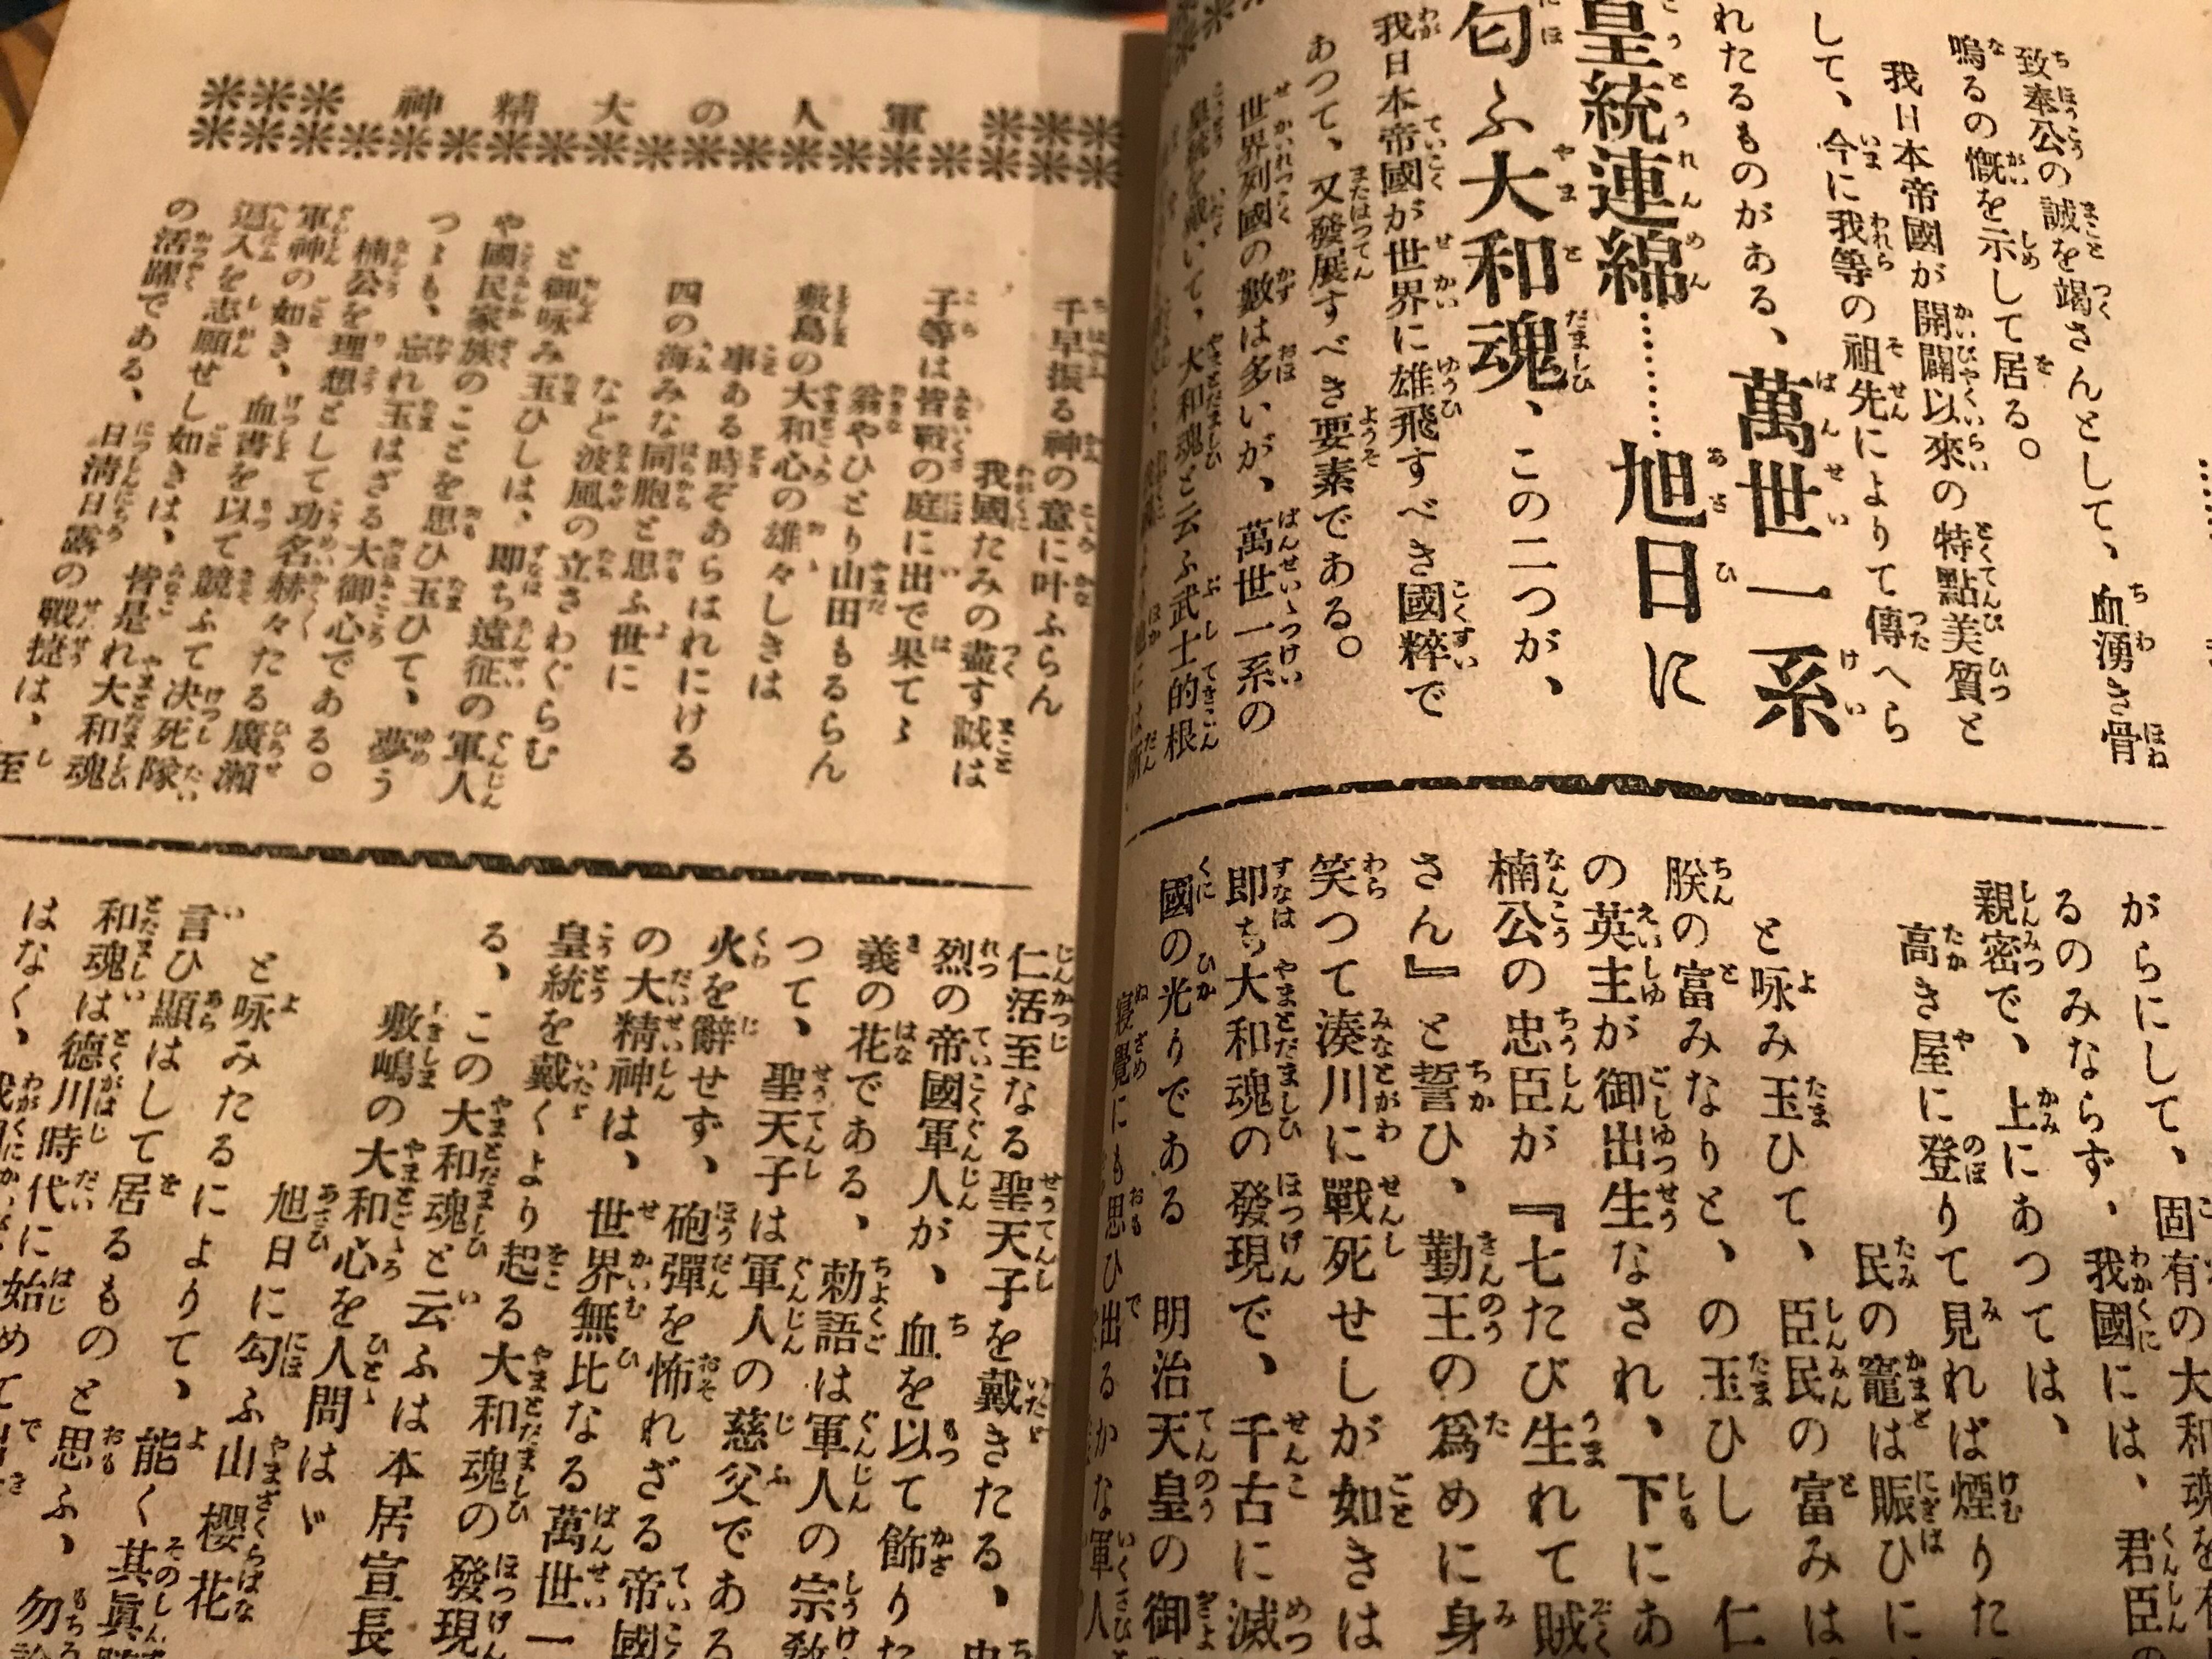 致奉公の誠を竭さんとして、血湧き骨
鳴るの慨を示して居る。
我日本帝國が開闢以來の特點美質と
して、今に我等の祖先によりて傳へら
れたるものがある、萬世一系
皇統連綿………旭日に
匂ふ大和魂、この二つが、
我日本帝國が世界に雄飛すべき國粹で
あつて、又發展すべき要素である。
世界列國の數は多いが、萬世一系の
皇統を戴いて、大和魂と云ふ武士的根
がらにして、固有の大和魂を
るのみならず、我國には、君臣の
親密で、上にあつては、
高き屋に登りて見れば煙りた
民の竈は賑ひに
と咏み玉ひて、臣民の富みは
朕の富みなりと、の玉ひし仁
の英主が御出生なされ、下にあ
楠公の忠臣が『七たび生れて賊
さん』と誓ひ、勤王の爲めに身
笑つて湊川に戰死せしが如きは
即ち大和魂の發現で、千古に滅
國の光りである
明治天皇の御
寢覺にも思ひ出るかな軍人
軍人の大精神
千早振る神の意に叶ふらん
我國たみの盡す誠は
子等は皆戰の庭に出で果てゝ
翁やひとり山田もるらん
敷島の大和心の雄々しきは
事ある時ぞあらはれにける
四の海みな同胞と思ふ世に
など波風の立さわぐらむ
と御咏み玉ひしは、即ち遠征の軍人
や國民家族のことを思ひ玉ひて、夢う
つゝも、忘れ玉はざる大御心である。
楠公を理想として功名赫々たる廣瀨
軍神の如き、血書を以て競ふて决死隊
這入を志願せし如きは、皆是れ大和魂
の活躍である、日淸日露の戰捷は、至
仁活至なる聖天子を戴きたる、忠
烈の帝國軍人が、血を以て飾りた
義の花である、勅語は軍人の宗敎
つて、聖天子は軍人の慈父である
火を辭せず、砲彈を怖れざる帝國
の大精神は、世界無比なる萬世一
皇統を戴くより起る大和魂の發現
る、この大和魂と云ふは本居宣長
敷嶋の大和心を人問はゞ
旭日に匂ふ山櫻花
と咏みたるによりて、能く其眞
言ひ顯はして居るものと思ふ、勿論
和魂は德川時代に始めて出
はなく、我國